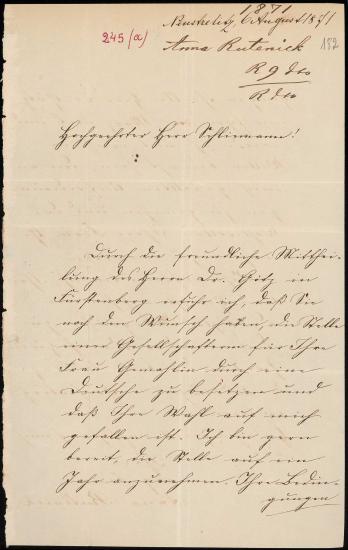 1871
Neustrelitz, 6 August 1871
245 (a)
182
Anna Rutenick
R 9 dto
R dto
Hochgeehrter Herr Schliemann!
Durch die freundliche Mitthei-
lung des Herrn Dr. Götz in
Fürstenberg erfuhr ich, daß Sie
noch den Wunsch haben, die Stelle
einer Gesellschafterin für Ihre
Frau Gemahlin durch eine
Deutsche zu besetzen und
daß Ihre Wahl auf mich
gefallen ist. Ich bin gern
bereit, die Stelle auf ein
Jahr anzunehmen. Ihre Bedin-
gungen